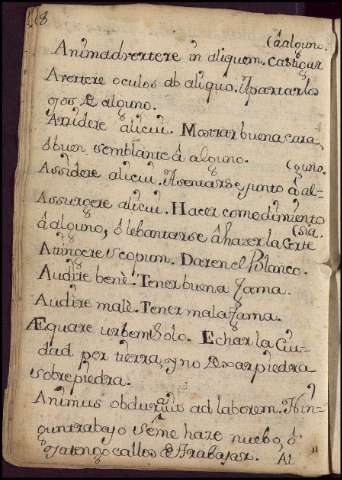 18
(â alguno.
Animadvertere in aliquem. Castigar
Avertere oculos ab aliquo. Apartarlos
ojos de alguno.
Arridere alicui. Mostrar buena cara,
ô buen semblante â alguno.
(guno.
Assidere alicui. Asentarse junto â al-
Assurgere alicui. Hacer comedimiento
(sia.
â alguno, ô lebantarse â hazer la Corte
Attingere scopum. Dar en el Blanco.
Audire benè. Tener buena fama.
Audire malè. Tener mala fama.
Æquare urbem solo. Echar la Ciu-
dad por tierra, y no dexar piedra
sobre piedra.
Animus obduruit ad laborem. Nin-
gun trabajo seme haze nuebo, ô
ya tengo callos de trabajar.
Al